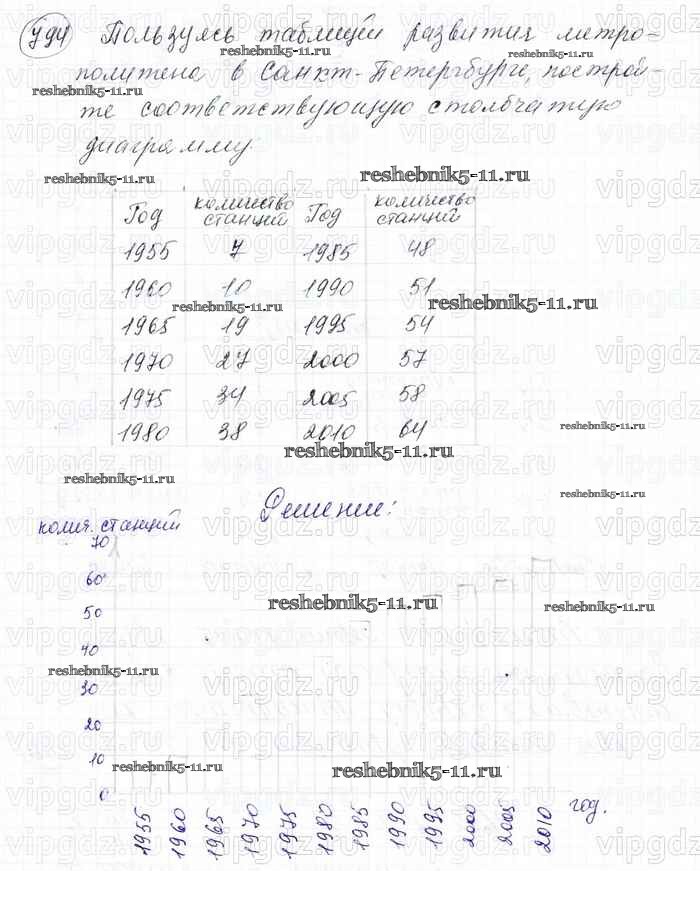 794 Пользуясь таблицей развития метро-
политена в Санкт-Петербурге, построй-
те соответствующую столбчатую
диаграмму.
Год количество станций Год количество станций
1955 7 1985 48
1960 10 1990 51
1965 19 1995 54
1970 27 2000 57
1975 34 2005 58
1980 38 2010 64
Решение:
колич. станций
70
60
50
40
30
20
10
0
1955 1960 1965 1970 1975 1980 1985 1990 1995 2000 2005 2010 год.
reshebnik5-11.ru
vipgdz.ru